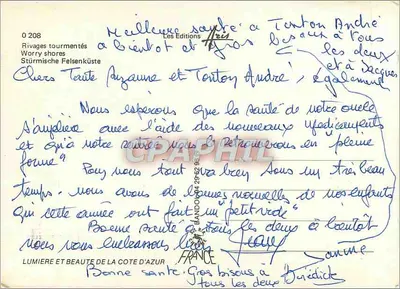 Meilleure santé à Tonton André
à bientôt et gros bisous à tous
les deux
et à Jacques
également
0 208
Les Editions Aris
Rivages tourmentés
Worry shores
Stürmische Felsenküste
Chers Tante Suzanne et Tonton André,
Nous espérons que la santé de notre oncle
s'améliore avec l'aide des nouveaux médicaments
et qu'à notre arrivée nous le retrouverons en "pleine
forme"
Pour nous tout va bien sous un très beau
temps. nous avons de bonnes nouvelles de nos enfants
qui cette année ont fait un "petit vide"
Bonne santé à tous les deux à bientôt
nous vous embrassons bien
FRANCE
LUMIERE ET BEAUTE DE LA COTE D'AZUR
Bonne santé. Gros bisous à
tous les deux Bénédicte
CPAPHIL